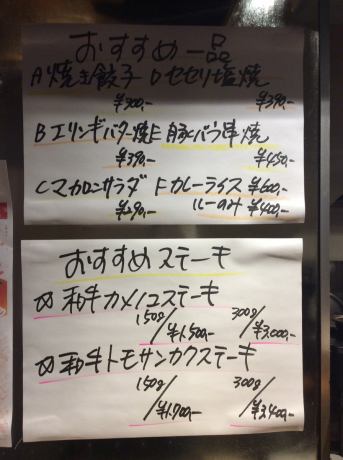 おすすめ一品
A焼き餃子 Dセセリ塩焼
¥300,- ¥390,-
Bエリンギバター焼 E豚バラ串焼
¥390,- ¥450,-
Cマカロニサラダ Fカレーライス ¥600,-
¥290,- ルーのみ ¥400,-
おすすめステーキ
和牛カメノコステーキ
150g/¥1,500,- 300g/¥3,000,-
和牛トモサンカクステーキ
150g/¥1,700,- 300g/¥3,400,-